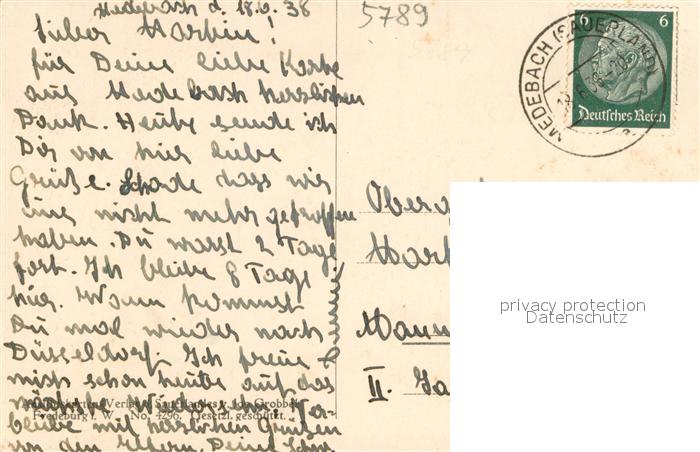 Medebach d. 18.6.38
Lieber Martin!
für Deine liebe Karte
aus Medebach herzlichen
Dank. Heute sende ich
Dir von hier liebe
Grüße. Schade dass wir
uns nicht mehr getroffen
haben. Du warst 2 Tage
fort. Ich bleibe 8 Tage
hier. Wann kommst
Du mal wieder nach
Düsseldorf. Ich freue
mich schon heute auf das
nächste Wiedersehen.
bleibe mit herzlichen Grüßen
von den Eltern, Deine
Verlag Sauerlandes v. Jos. Grobbel
Fredeburg i. W. No. 4296. Gesetzl. geschützt.
5789
MEDEBACH (SAUERLAND)
6 6
Deutsches Reich
II.
privacy protection
Datenschutz